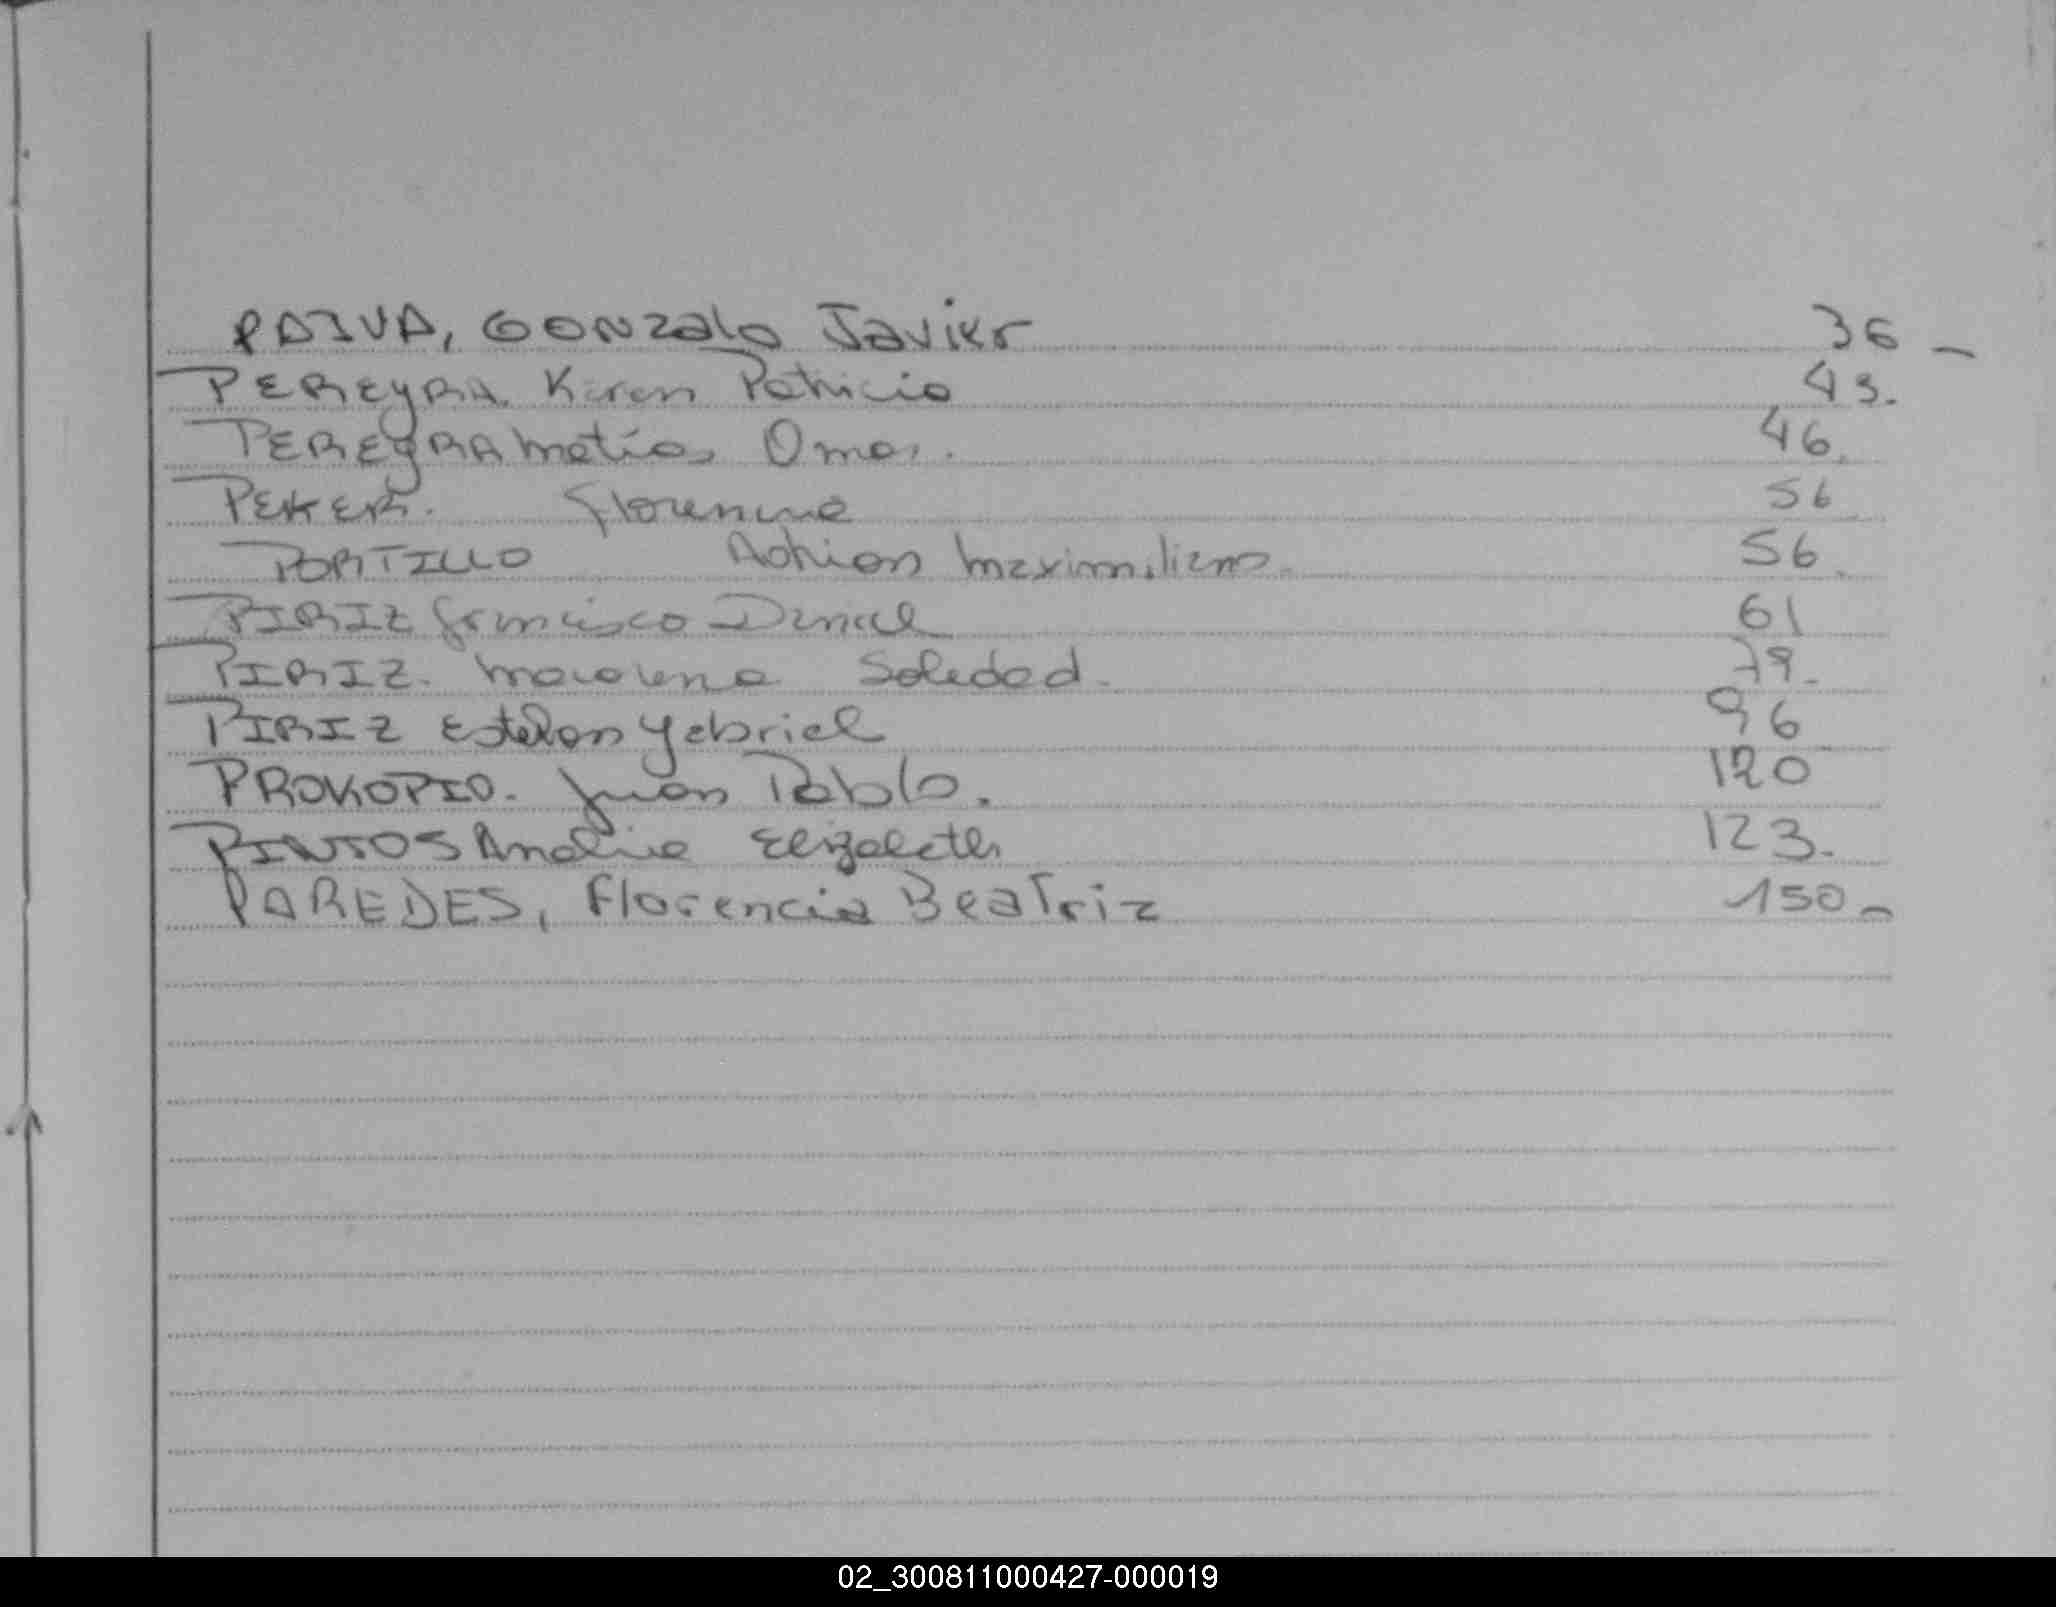 PAIVA, GONZALO Javier 36 -
PEREYRA. Karen Patricia 43.
PEREYRA Matías Omar. 46.
PEKER. Florencia 56
PORTILLO Adrian Maximiliano. 56.
PIRIZ Francisco Daniel 61
PIRIZ. Macarena Soledad. 79.
PIRIZ Esteban Gabriel 96
PROKOPIO. Juan Pablo. 120
PINTOS Analia Elizabeth 123.
PAREDES, Florencia Beatriz 150 -
02_300811000427-000019